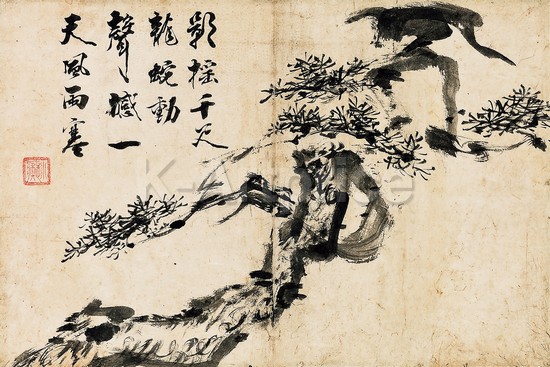 影搖千尺
龍蛇動
聲撼一
天風雨寒